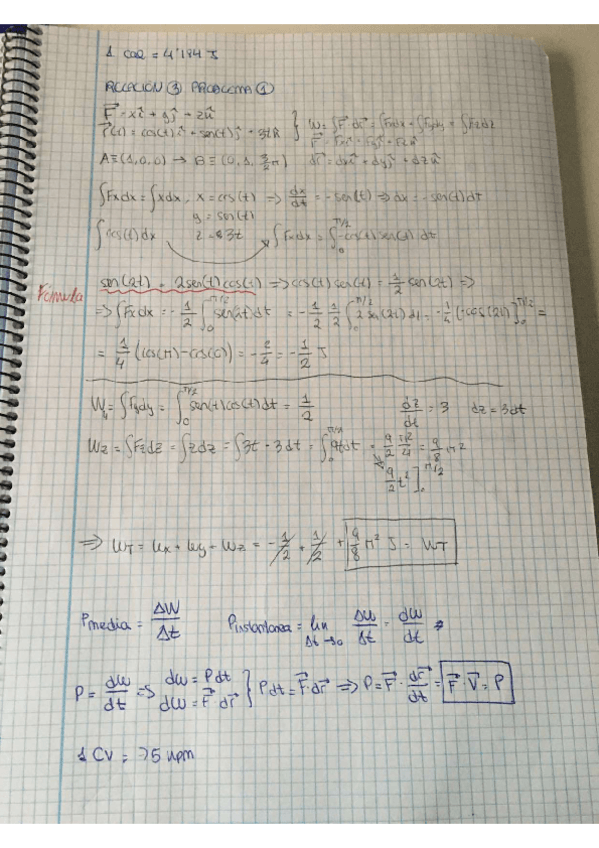 1 cal = 4'184 J
RELACIÓN ③ PROBLEMA ①
F⃗ = xî + yĵ + zk̂ } W = ∫F⃗·dr⃗ = ∫Fxdx + ∫Fydy + ∫Fzdz
r⃗(t) = cos(t)î + sen(t)ĵ + 3tk̂ F⃗ = Fxî + Fyĵ + Fzk̂
A≡(1,0,0) → B≡(0,1,3/2π) dr⃗ = dxî + dyĵ + dzk̂
∫Fxdx = ∫xdx, x = cos(t) ⇒ dx/dt = -sen(t) ⇒ dx = -sen(t)dt
y = sen(t)
∫cos(t)dx z = 3t ∫Fxdx = ∫₀^π/2 -cos(t)sen(t)dt
Fórmula sen(2t) = 2sen(t)cos(t) ⇒ cos(t)sen(t) = 1/2 sen(2t) ⇒
⇒ ∫Fxdx = -1/2 ∫₀^π/2 sen(2t)dt = -1/2 1/2 ∫₀^π/2 2sen(2t)dt = -1/4 [-cos(2t)]₀^π/2 =
= 1/4 (cos(π)-cos(0)) = -2/4 = -1/2 J
Wy = ∫Fydy = ∫₀^π/2 sen(t)cos(t)dt = 1/2 dz/dt = 3 dz = 3dt
Wz = ∫Fzdz = ∫zdz = ∫3t·3dt = ∫₀^π/2 9tdt = 9/2 π²/4 = 9/8 π²
9/2 t²]₀^π/2
⇒ WT = Wx + Wy + Wz = -1/2 + 1/2 + 9/8 π² J = WT
Pmedia = ΔW/Δt Pinstantánea = lim Δt→0 ΔW/Δt = dW/dt ⇒
P = dW/dt ⇒ dW = Pdt } Pdt = F⃗·dr⃗ ⇒ P = F⃗·dr⃗/dt = F⃗·V⃗ = P
dW = F⃗ dr⃗
1 CV =